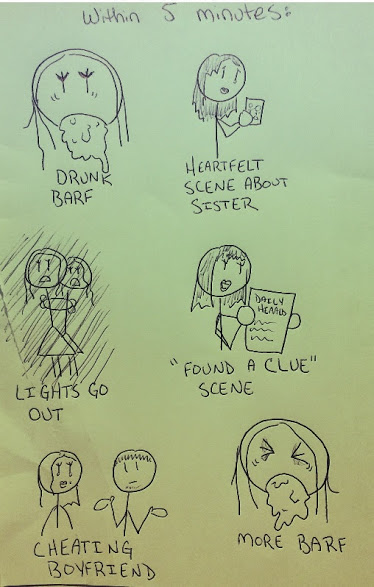 Within 5 minutes:
DRUNK
BARF
HEARTFELT
SCENE ABOUT
SISTER
LIGHTS GO
OUT
DAILY
HERALD
"FOUND A CLUE"
SCENE
CHEATING
BOYFRIEND
MORE BARF